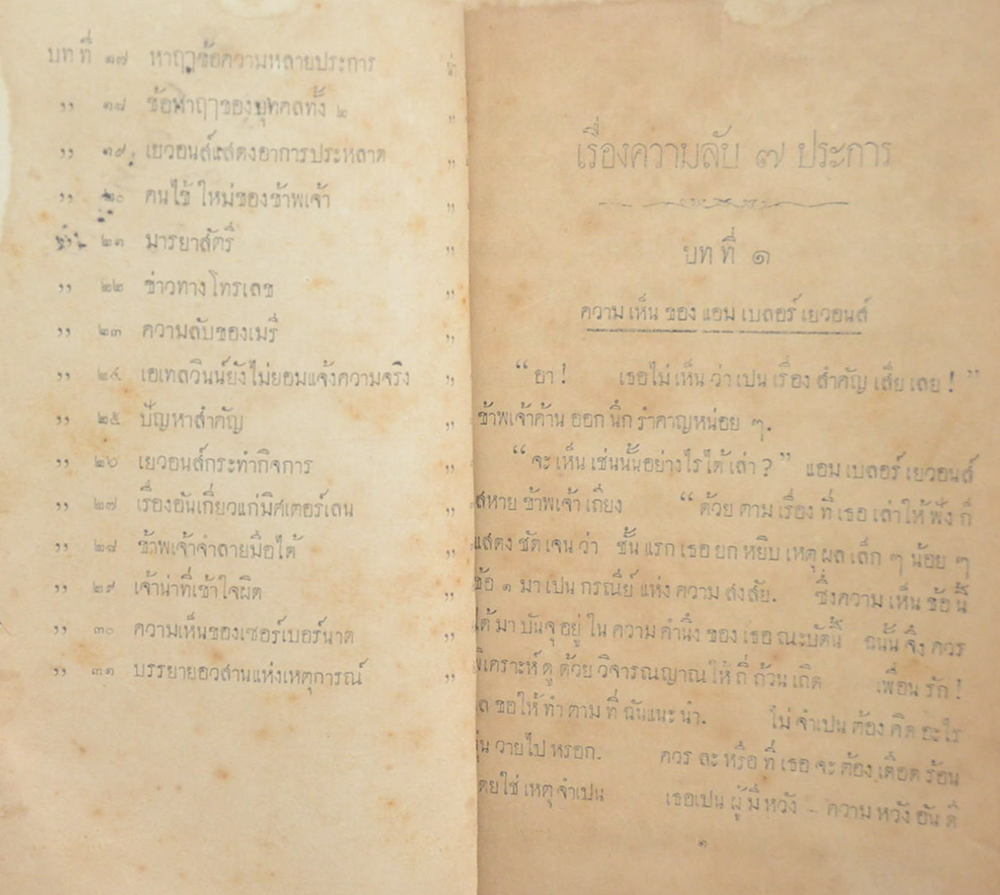 บทที่ ๑๗ หาฤๅข้อความหลายประการ
,, ๑๘ ข้อหาฤๅของบุทคลทั้ง ๒
,, ๑๙ เยวอนส์แสดงอาการประหลาด
,, ๒๐ คนไข้ใหม่ของข้าพเจ้า
,, ๒๑ มารยาสัตรี
,, ๒๒ ข่าวทางโทรเลข
,, ๒๓ ความลับของเมรี
,, ๒๔ เอเทลวินน์ยังไม่ยอมแจ้งความจริง ,,
,, ๒๕ ปัญหาสำคัญ ,,
,, ๒๖ เยวอนส์กระทำกิจการ ,,
,, ๒๗ เรื่องอันเกี่ยวแก่มิศเตอร์เลน ,,
,, ๒๘ ข้าพเจ้าจำลายมือได้ ,,
,, ๒๙ เจ้าน่าที่เข้าใจผิด ,,
,, ๓๐ ความเห็นของเซอร์เบอร์นาด ,,
,, ๓๑ บรรยายอวสานแห่งเหตุการณ์ ,,
เรื่องความลับ ๗ ประการ
บทที่ ๑
ความเห็นของแอมเบลอร์เยวอนส์
“อา ! เธอไม่เห็นว่าเปนเรื่องสำคัญเสียเลย ! ”
ข้าพเจ้าค้านออกนึกรำคาญหน่อย ๆ.
“จะเห็นเช่นนั้นอย่างไรได้เล่า ? ” แอมเบลอร์เยวอนส์
สหายข้าพเจ้าเถียง “ด้วยตามเรื่องที่เธอเล่าให้ฟังก็
แสดงชัดเจนว่า ชั้นแรกเธอยกหยิบเหตุผลเล็ก ๆ น้อย ๆ
ข้อ ๑ มาเปนกรณีย์แห่งความสงสัย. ซึ่งความเห็นข้อนี้
ได้มาบันจุอยู่ในความคำนึงของเธอณะบัดนี้ ฉนั้นจึงควร
พิเคราะห์ดูด้วยวิจารณญาณให้ถี่ถ้วนเถิด เพื่อนรัก !
ขอให้ทำตามที่ฉันแนะนำ. ไม่จำเปนต้องคิดอะไร
วุ่นวายไปหรอก. ควรละหรือที่เธอจะต้องเดือดร้อน
โดยใช่เหตุจำเปน เธอเปนผู้มีหวัง – ความหวังอันดี
๑